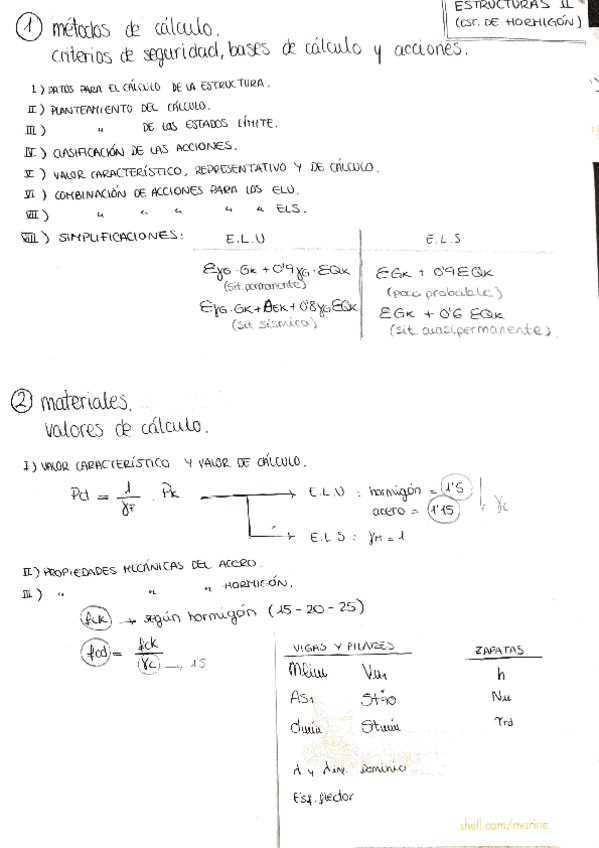 ESTRUCTURAS II
(EST. DE HORMIGÓN)
① métodos de cálculo.
criterios de seguridad, bases de cálculo y acciones.
I) DATOS PARA EL CÁLCULO DE LA ESTRUCTURA.
II) PLANTEAMIENTO DEL CÁLCULO.
III) " DE LOS ESTADOS LÍMITE.
IV) CLASIFICACIÓN DE LAS ACCIONES.
V) VALOR CARACTERÍSTICO, REPRESENTATIVO Y DE CÁLCULO.
VI) COMBINACIÓN DE ACCIONES PARA LOS ELU.
VII) " " " " " ELS.
VIII) SIMPLIFICACIONES: E.L.U E.L.S
ΣγG·GK + 0'9γG·ΣQK ΣGK + 0'9ΣQK
(sit. permanente) (poco probable)
ΣγG·GK + AEK + 0'8γGΣQK ΣGK + 0'6 ΣQK
(sit sísmica) (sit. cuasipermanente)
② materiales.
valores de cálculo.
I) VALOR CARACTERÍSTICO Y VALOR DE CÁLCULO.
Pd = 1/γF · PK → E.L.U : hormigón = 1'5
acero = 1'15 γc
→ E.L.S : γM = 1
II) PROPIEDADES MECÁNICAS DEL ACERO.
III) " " " HORMIGÓN.
fck → según hormigón (15 - 20 - 25)
fcd = fck/γc → 1'5
VIGAS Y PILARES ZAPATAS
h
AS1 Nu
dmin
λ y λ Dominio
Esf. flector
shell.com/marine